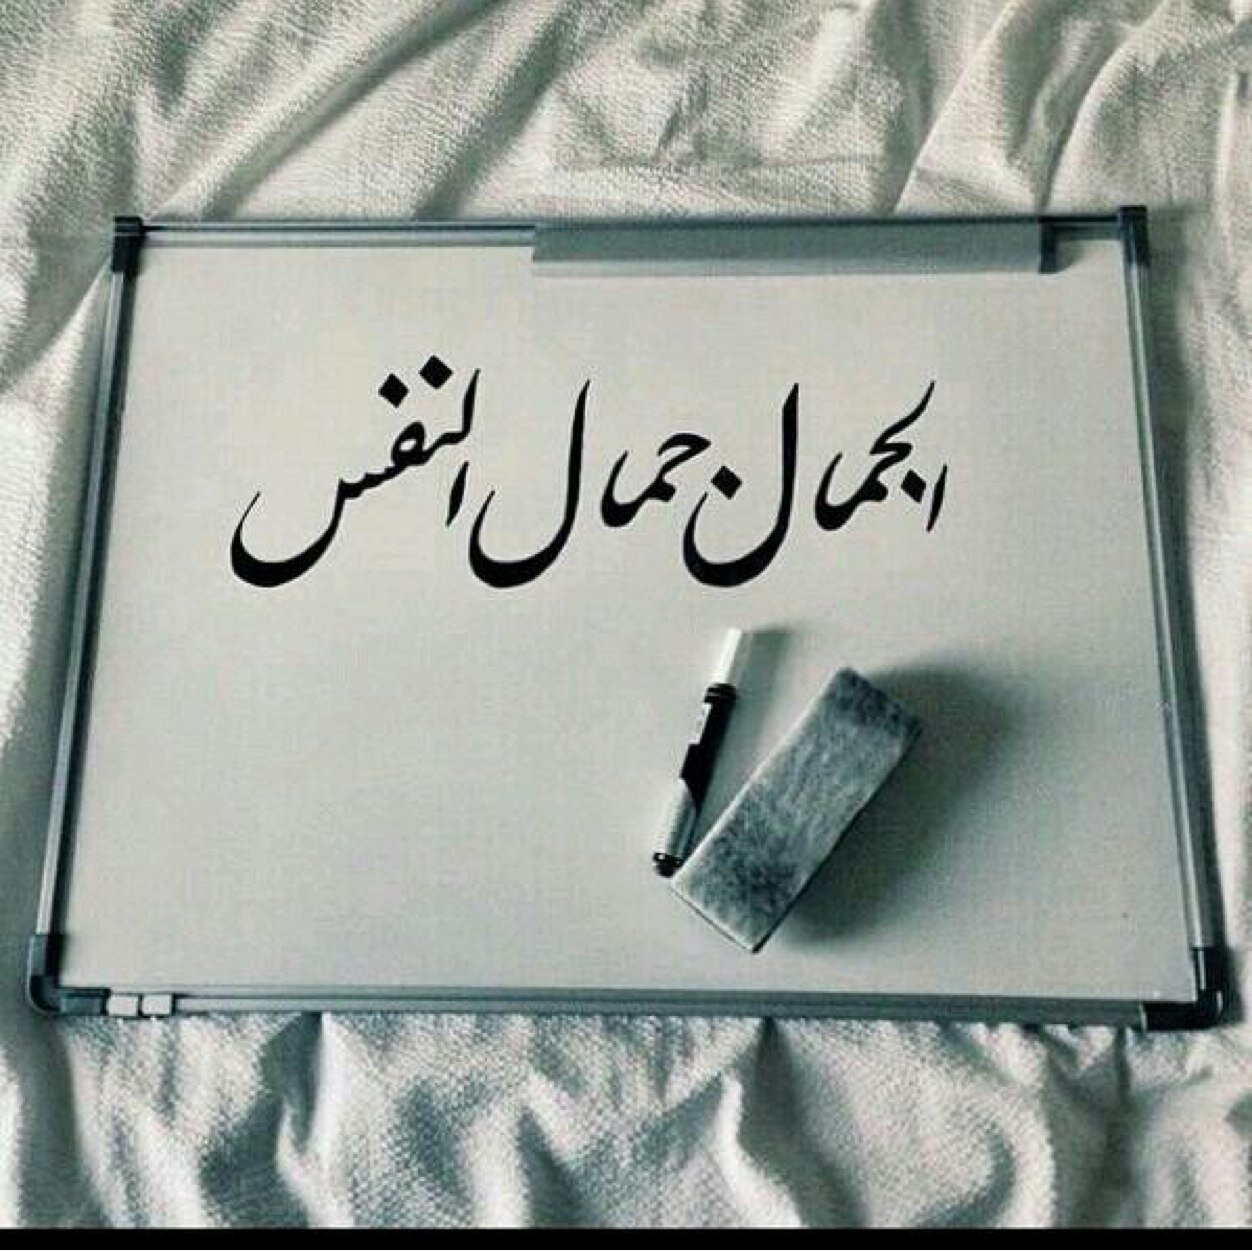 الجمال جمال النفس